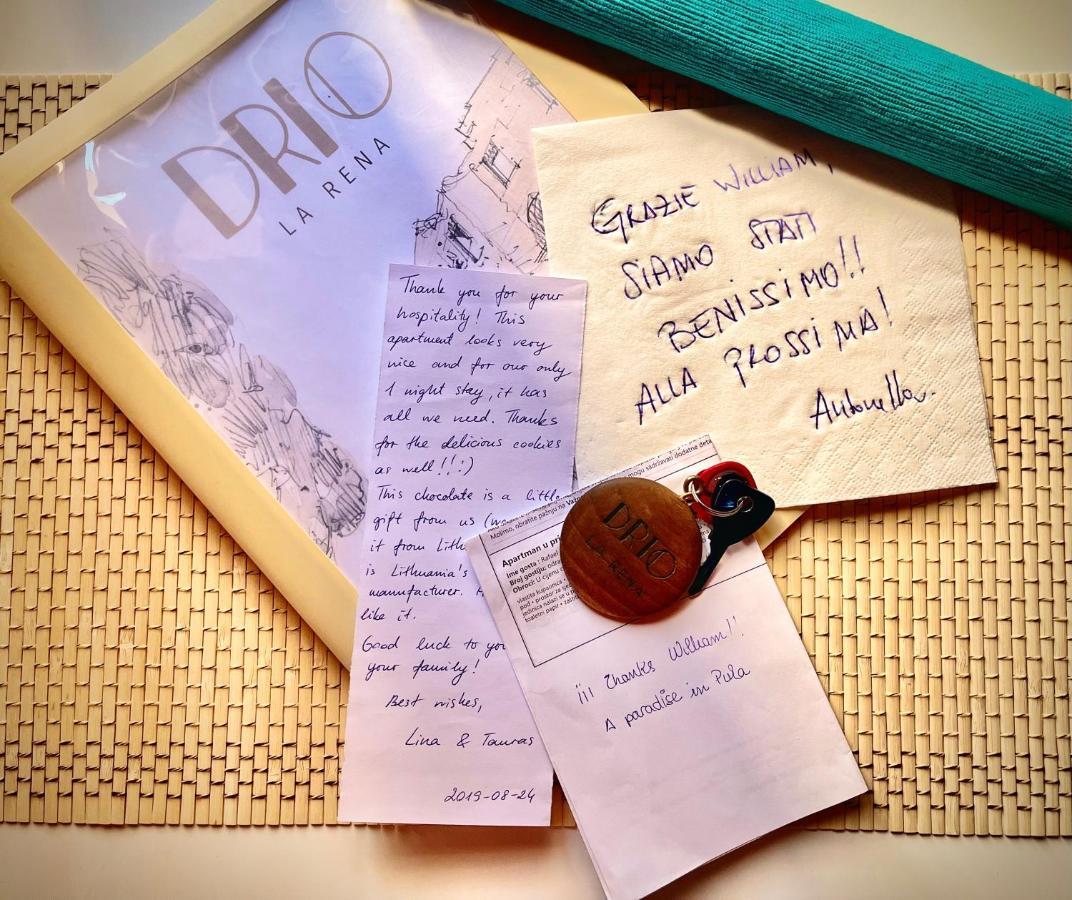 DRIO
LA RENA
GRAZIE WILLIAM,
SIAMO STATI
BENISSIMO!!
ALLA PROSSIMA!
Antonella.
Thank you for your
hospitality! This
apartment looks very
nice and for our only
1 night stay, it has
all we need. Thanks
for the delicious cookies
as well!! :)
This chocolate is a little
gift from us (
it from Lith
is Lithuania's
manufacturer.
like it.
Good luck to you
your family!
Best wishes,
Lina & Tauras
2019-08-24
mogu sadržavati dodatne deta
Molimo, obratite pažnju na Važ
Apartman u pri
Ime gosta: Rafael
Broj gostiju: odra
Obroci: U cijenu
DRIO
LA RENA
¡¡¡ Thanks William!!
A paradise in Pula